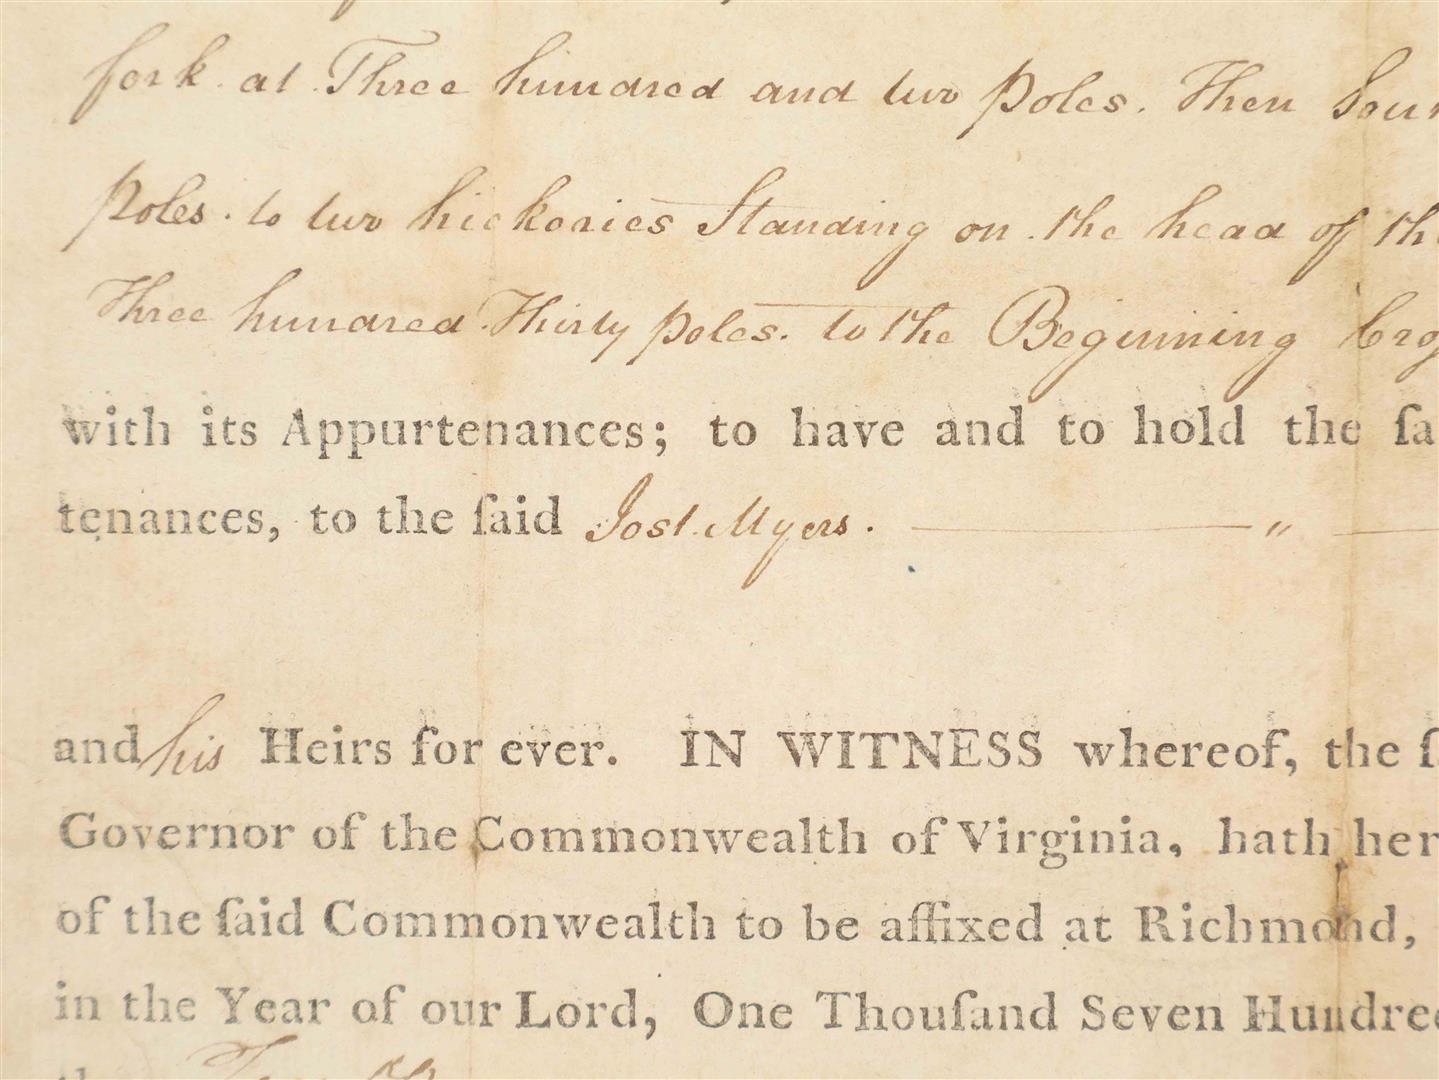 fork at Three hundred and two poles. Then Sou
poles. to two hickories Standing on the head of th
Three hundred Thirty poles. to the Beginning
with its Appurtenances; to have and to hold the ſa
tenances, to the ſaid Jost Myers.
and his Heirs for ever. IN WITNESS whereof, the ſ
Governor of the Commonwealth of Virginia, hath her
of the ſaid Commonwealth to be affixed at Richmond,
in the Year of our Lord, One Thouſand Seven Hundred